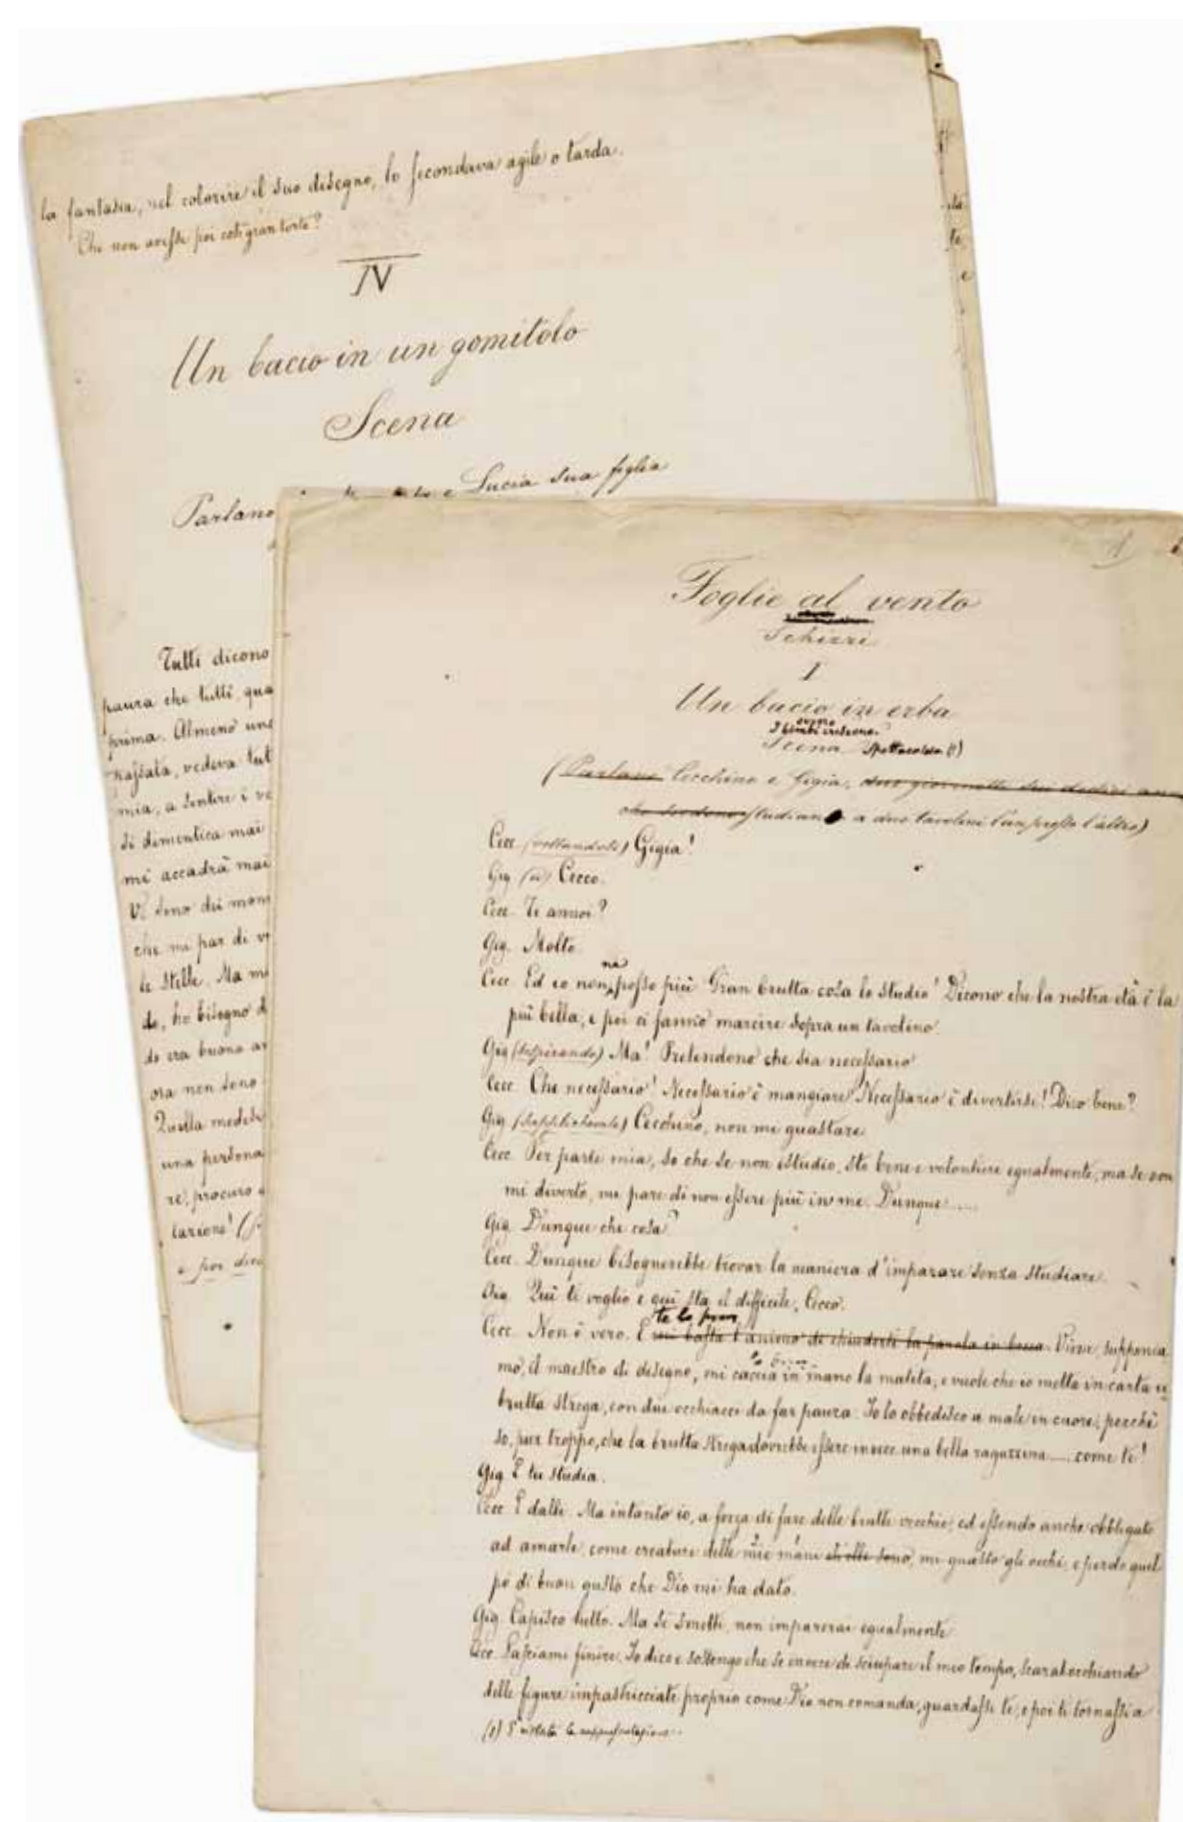 la fantasia, nel colorire il suo disegno, lo secondava agile o tarda.
Che non avesse poi così gran torto?
IV
Un bacio in un gomitolo
Scena
Parlano e Lucia sua figlia
Tutti dicono
paura che tutti, qua
prima. Almeno una
passata, vedeva tut
mia, a sentire i ve
si dimentica mai
mi accadrà mai
Vi sono dei mom
che mi par di v
le stelle. Ma m
do, ho bisogno d
do era buono a
ora non sono
Quella medesi
una persona
re, procuro
lazione!
e poi dice
Foglie al vento
Schizzi
I
Un bacio in erba
ovvero
I bimbi crescono
Scena Spettacolosa (1)
(Parlano Cecchino e Gigia, due giovinetti sui dodici an
che siedono studiano a due tavolini l'un presso l'altro)
Cecc. (voltandosi) Gigia!
Gig. Cecco.
Cecc. Ti annoi?
Gig. Molto.
ne
Cecc. Ed io non posso più. Gran brutta cosa lo studio! Dicono che la nostra età è la
più bella, e poi ci fanno marcire sopra un tavolino.
Gig. (sospirando) Ma! Pretendono che sia necessario
Cecc. Che necessario! Necessario è mangiare! Necessario è divertirsi! Dico bene?
Gig. (supplichevole) Cecchino, non mi guastare
Cecc. Per parte mia, so che se non istudio, sto bene e volentieri egualmente, ma se non
mi diverto, mi pare di non essere più in me. Dunque.....
Gig. Dunque che cosa?
Cecc. Dunque bisognerebbe trovar la maniera d'imparare senza studiare.
Gig. Qui ti voglio e qui sta il difficile, Cecco.
te lo provo
Cecc. Non è vero. E mi basta l'animo di chiuderti la parola in bocca. Viene, supponia
mo, il maestro di disegno, mi caccia in mano la matita, e vuole che io metta in carta u
brutta strega, con due occhiacci da far paura. Io lo obbedisco a male in cuore, perchè
so, pur troppo, che la brutta strega dovrebbe essere invece una bella ragazzina..... come te!
Gig. E tu studia.
Cecc. E dalli. Ma intanto io, a forza di fare delle brutte vecchie, ed essendo anche obbligato
ad amarle, come creature delle mie mani ch'elle sono, mi guasto gli occhi, e perdo quel
pò di buon gusto che Dio mi ha dato.
Gig. Capisco tutto. Ma se smetti, non imparerai egualmente.
Cecc. Lasciami finire. Io dico e sostengo che se invece di sciupare il mio tempo, scarabocchiando
delle figure impastricciate proprio come Dio non comanda, guardassi te, e poi ti tornassi a
(1) È vietata la rappresentazione.